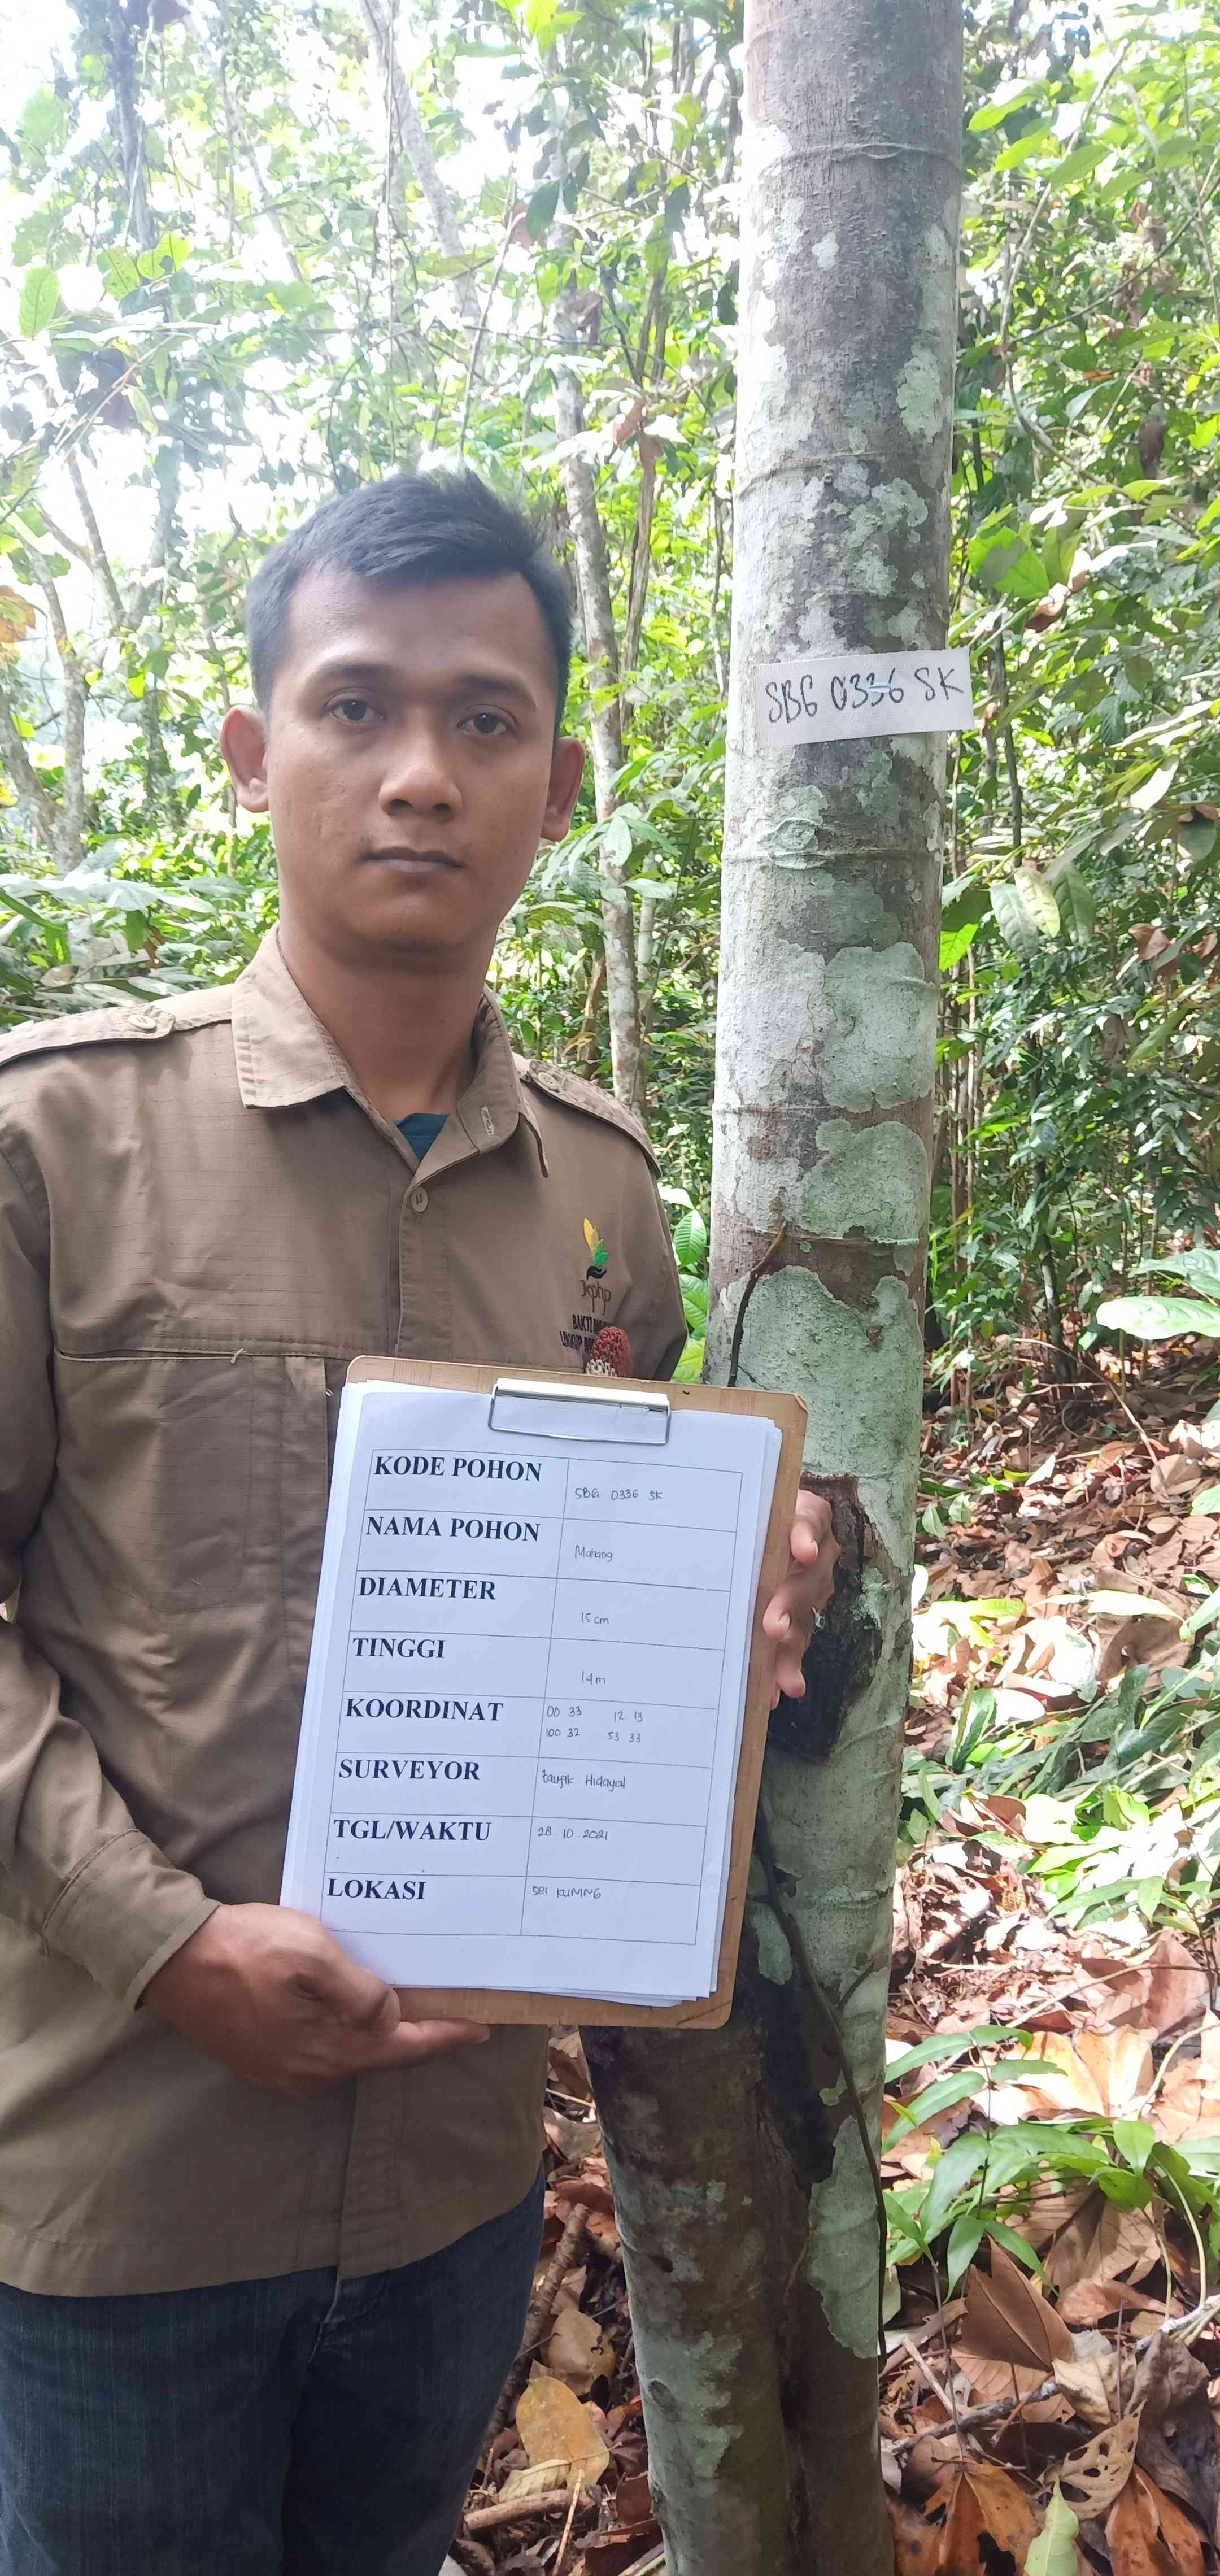 SBG 0336 SK
kphp
KODE POHON SBG 0336 SK
NAMA POHON Mahang
DIAMETER 15 cm
TINGGI 14 m
KOORDINAT 00 33 12. 13
100 32 53 33
SURVEYOR taufik Hidayat
TGL/WAKTU 28. 10. 2021
LOKASI SEI KUNING